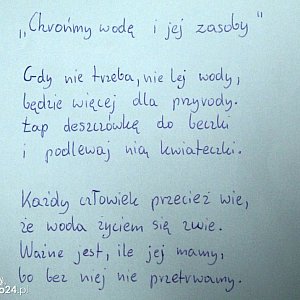 „Chrońmy wodę i jej zasoby"
Gdy nie trzeba, nie lej wody,
będzie więcej dla przyrody.
Łap deszczówkę do beczki
i podlewaj nią kwiateczki.
Każdy człowiek przecież wie,
że woda życiem się zwie.
Ważne jest, ile jej mamy,
bo bez niej nie przetrwamy.